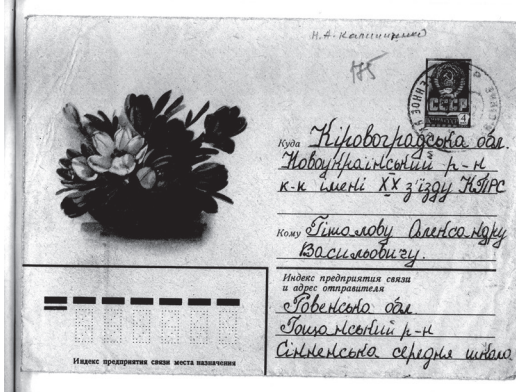 175
СССР
4
Куда Кіровоградська обл.
Новоукраїнський р-н
к-к імені XX з'їзду КПРС
Кому Гіталову Олександру
Васильовичу.
Индекс предприятия связи
и адрес отправителя
Ровенська обл
Гощанський р-н
Сінненська середня школа
Индекс предприятия связи места назначения